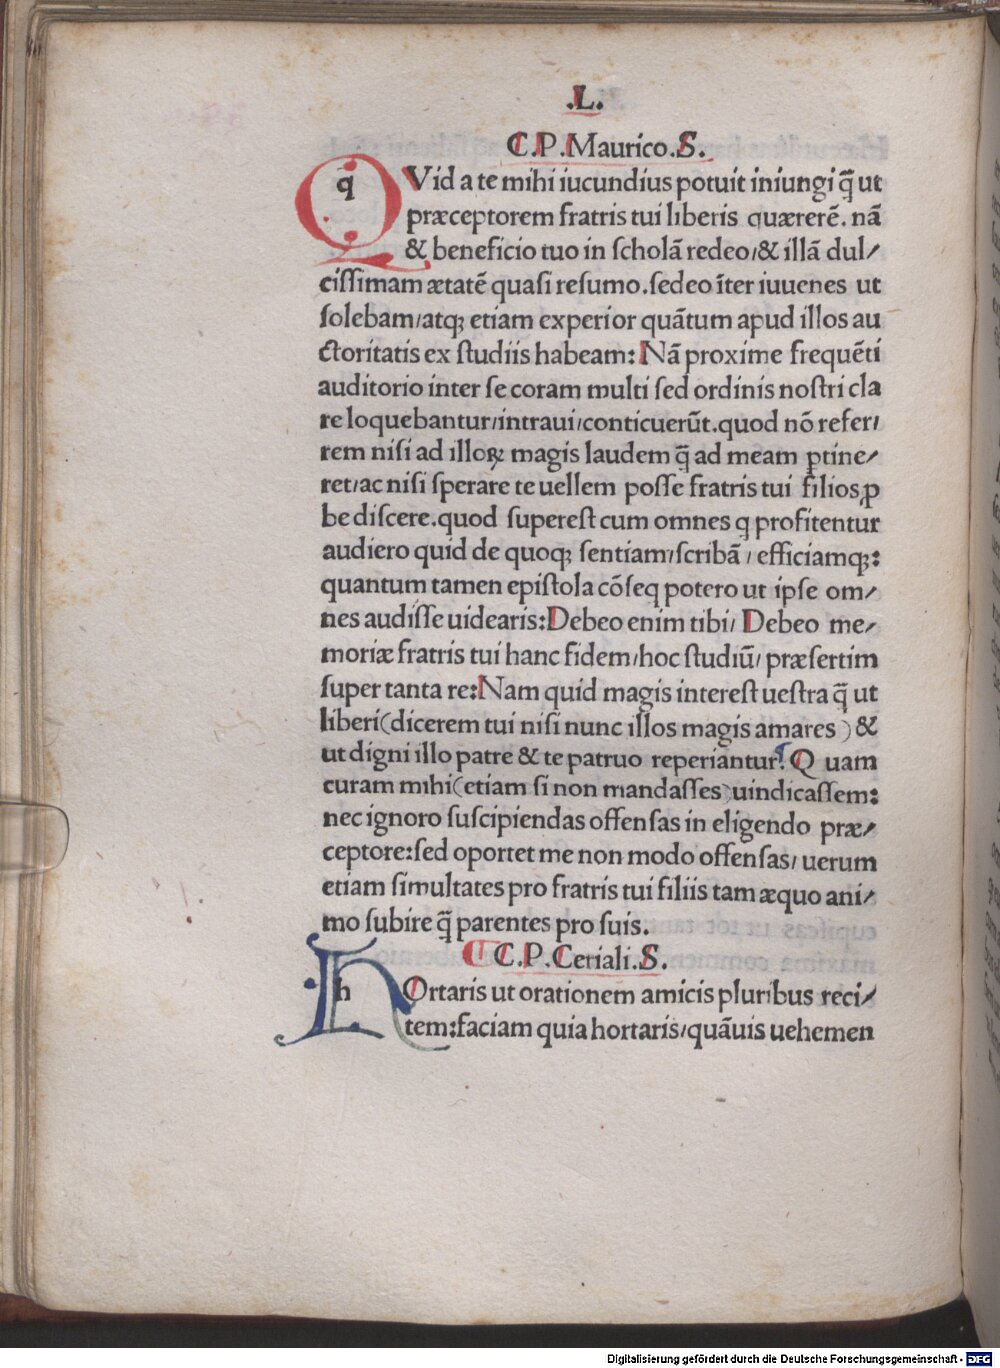 .L.
C.P.Maurico.S.
q
QVid a te mihi iucundius potuit iniungi q̃ ut
præceptorem fratris tui liberis quærerē. nã
& beneficio tuo in scholã redeo/& illã dul/
cissimam ætatē quasi resumo.sedeo īter iuuenes ut
solebam/atq; etiam experior quãtum apud illos au
ctoritatis ex studiis habeam: Nã proxime frequēti
auditorio inter se coram multi sed ordinis nostri cla
re loquebantur/intraui/conticuerũt.quod nõ refer/
rem nisi ad illoꝝ magis laudem q̃ ad meam ꝑtine/
ret/ac nisi sperare te uellem posse fratris tui filios ꝓ
be discere.quod superest cum omnes q profitentur
audiero quid de quoq; sentiam/scribã/efficiamq;:
quantum tamen epistola cõseq potero ut ipse om/
nes audisse uidearis: Debeo enim tibi/ Debeo me/
moriæ fratris tui hanc fidem/hoc studiũ/ præsertim
super tanta re: Nam quid magis interest uestra q̃ ut
liberi(dicerem tui nisi nunc illos magis amares ) &
ut digni illo patre & te patruo reperiantur? Q uam
curam mihi(etiam si non mandasses)uindicassem:
nec ignoro suscipiendas offensas in eligendo præ/
ceptore:sed oportet me non modo offensas/ uerum
etiam simultates pro fratris tui filiis tam æquo ani/
mo subire q̃ parentes pro suis.
C.P.Ceriali.S.
h
HOrtaris ut orationem amicis pluribus reci/
tem:faciam quia hortaris/quãuis uehemen
Digitalisierung gefördert durch die Deutsche Forschungsgemeinschaft - DFG